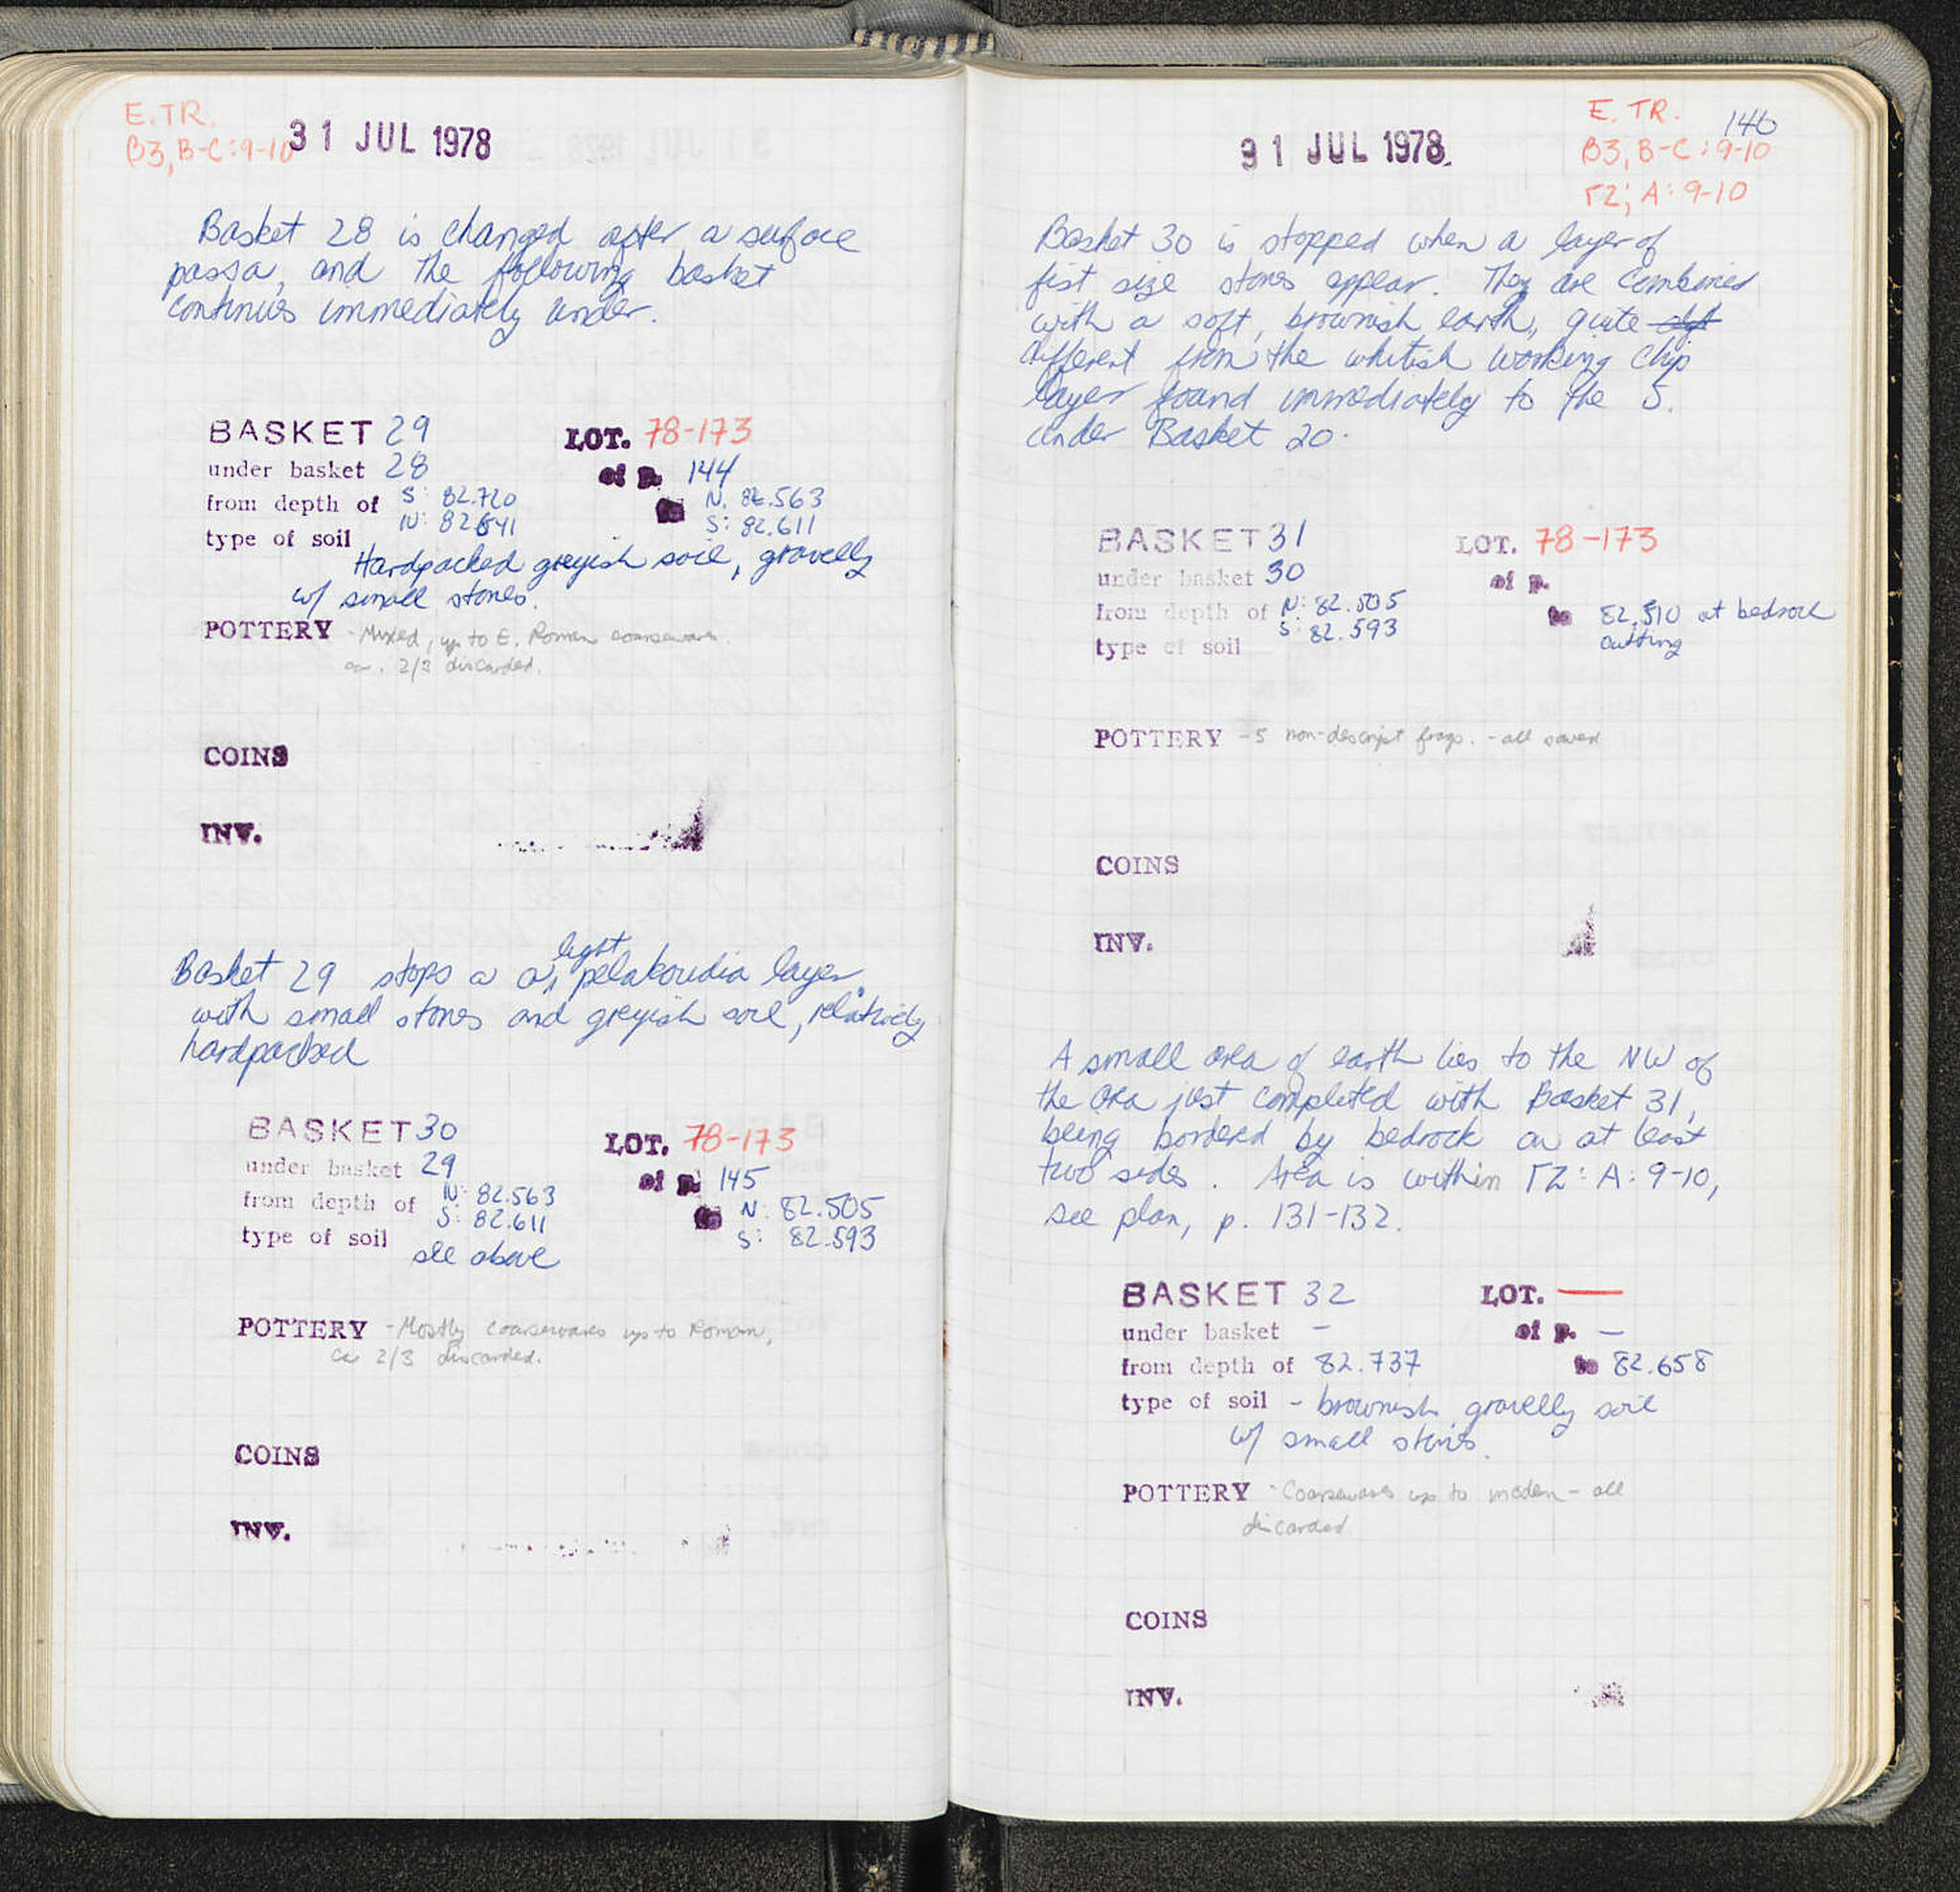 E. TR.
B3, B-C: 9-10
31 JUL 1978
Basket 28 is changed after a surface
passa, and the following basket
continues immediately under.
BASKET 29 LOT. 78-173
under basket 28 of p. 144
from depth of S: 82.720 to N. 82.563
N: 82.641 S: 82.611
type of soil
Hardpacked greyish soil, gravelly
w/ small stones.
POTTERY - Mixed, up to E. Roman coarseware
ca. 2/3 discarded.
COINS
INV.
light
Basket 29 stops a a pelakoudia layer
with small stones and greyish soil, relatively
hardpacked
BASKET 30 LOT. 78-173
under basket 29 of p. 145
from depth of N: 82.563 to N: 82.505
S: 82.611 S: 82.593
type of soil
see above
POTTERY - Mostly coarsewares up to Roman,
ca 2/3 discarded.
COINS
INV.
31 JUL 1978
E. TR. 146
B3, B-C: 9-10
Γ2; A: 9-10
Basket 30 is stopped when a layer of
fist size stones appear. They are combined
with a soft, brownish earth, quite dif
different from the whitish working chip
layer found immediately to the S.
under Basket 20.
BASKET 31 LOT. 78-173
under basket 30 of p.
from depth of N: 82.505 to 82.510 at bedrock
S: 82.593 cutting
type of soil
POTTERY - 5 non-descript frags. - all saved
COINS
INV.
A small area of earth lies to the NW of
the area just completed with Basket 31,
being bordered by bedrock on at least
two sides. Area is within Γ2: A: 9-10,
see plan, p. 131-132.
BASKET 32 LOT. —
under basket – of p. –
from depth of 82.737 to 82.658
type of soil - brownish gravelly soil
w/ small stones.
POTTERY - Coarsewares up to modern - all
discarded
COINS
INV.